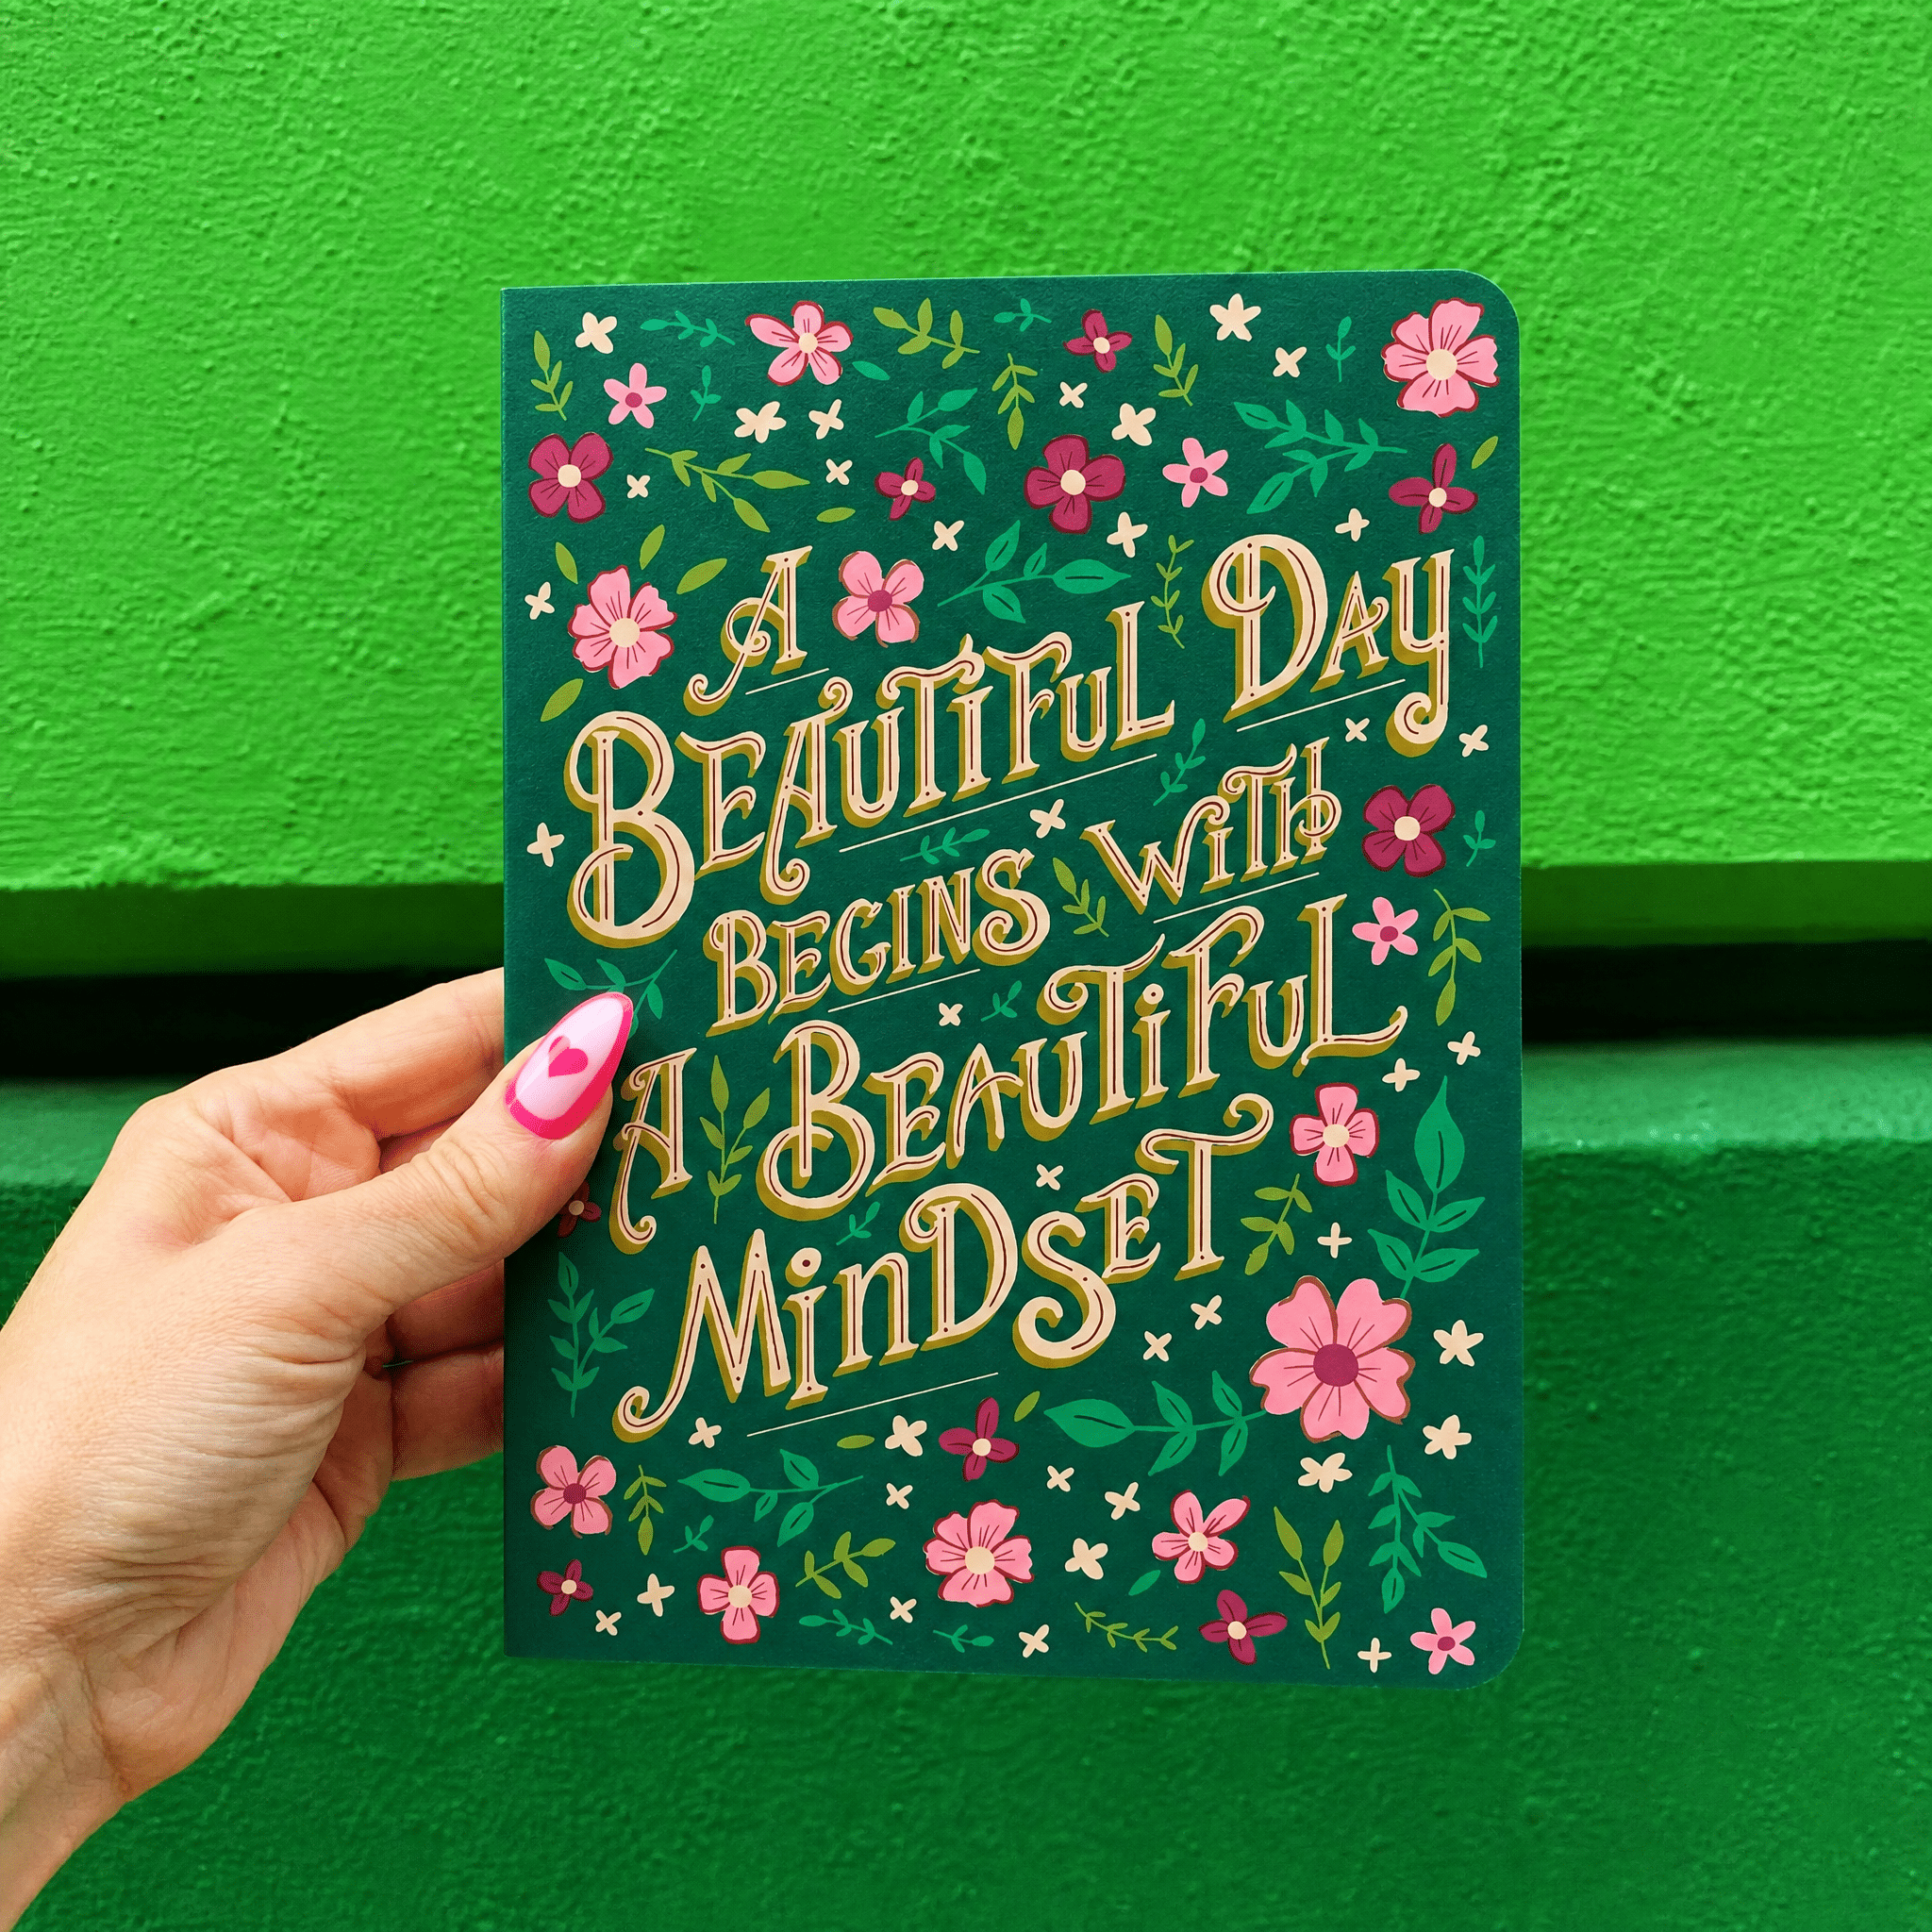 A
BEAUTiFUL DAY
BEGINS WiTH
A BEAUTiFUL
MiNDSET